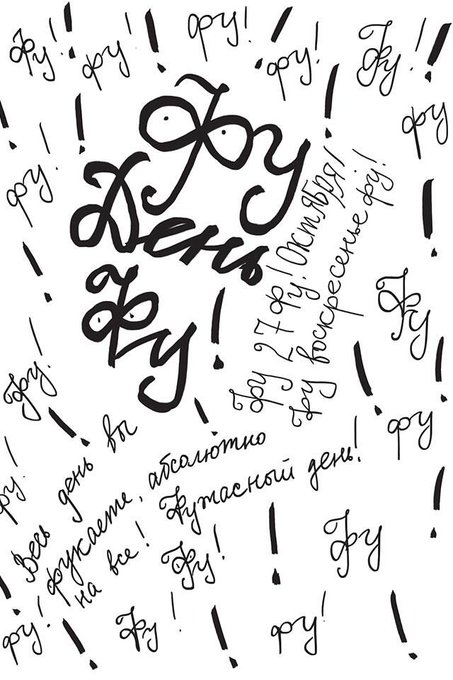 Фу!
фу!
фу!
фу!
Фу!
фу
фу!
Фу
День
Фу!
Фу 27 Фу! Октября!
Фу воскресенье фу!
Фу
фу!
фу
фу!
Весь день вы
фукаете, абсолютно
на все!
Фужасный день!
Фу!
Фу
фу!
Фу!
фу!